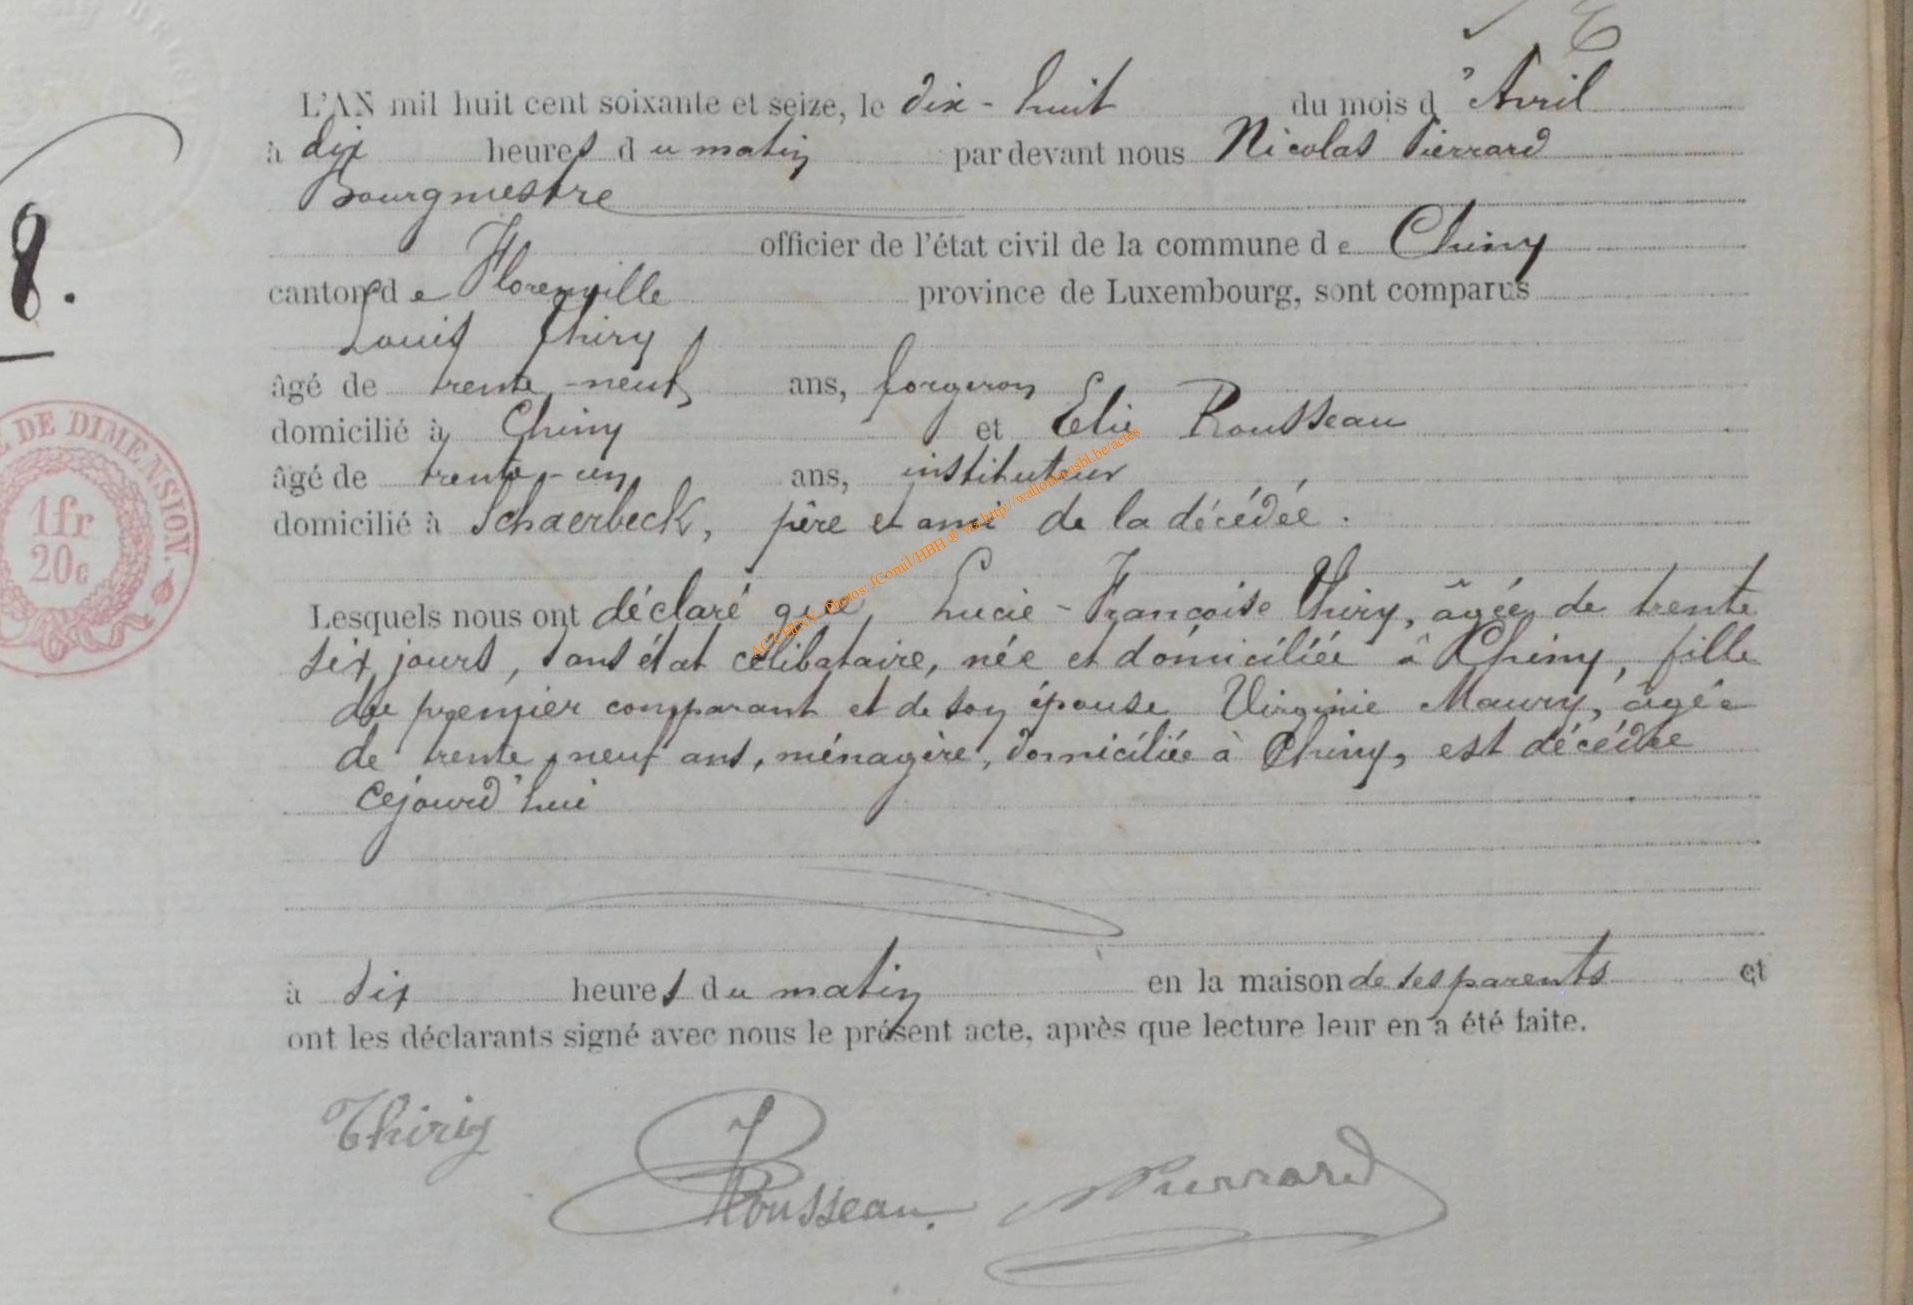 L'AN mil huit cent soixante et seize, le dix-huit du mois d'Avril
à dix heures du matin par devant nous Nicolas Pierrard
Bourgmestre
officier de l'état civil de la commune de Chiny
canton de Florenville province de Luxembourg, sont comparus
Louis Thiry
âgé de trente-neuf ans, forgeron
domicilié à Chiny et Elie Rousseau
âgé de trente-un ans, instituteur
domicilié à Schaerbeck, père et ami de la décédée.
Lesquels nous ont déclaré que Lucie-Françoise Thiry, âgée de trente
six jours, sans état célibataire, née et domiciliée à Chiny, fille
du premier comparant et de son épouse Virginie Maury, âgée
de trente neuf ans, ménagère, domiciliée à Chiny, est décédée
cejourd'hui
à six heures du matin en la maison de ses parents et
ont les déclarants signé avec nous le présent acte, après que lecture leur en a été faite.
Thiry
Rousseau.
Pierrard
8.
DE DIMENSION.
1fr
20c
Photos: JComil/HBH @ http://wallonia.asbl.be/actes